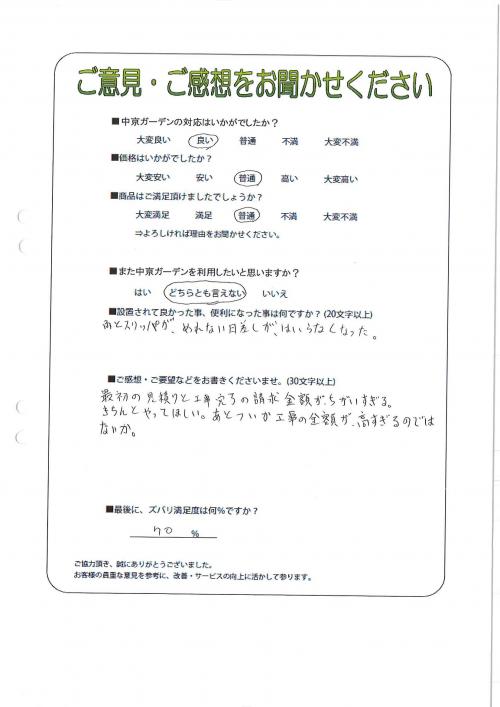 ご意見・ご感想をお聞かせください
■中京ガーデンの対応はいかがでしたか？
大変良い 良い 普通 不満 大変不満
■価格はいかがでしたか？
大変安い 安い 普通 高い 大変高い
■商品はご満足頂けましたでしょうか？
大変満足 満足 普通 不満 大変不満
⇒よろしければ理由をお聞かせください。
■また中京ガーデンを利用したいと思いますか？
はい どちらとも言えない いいえ
■設置されて良かった事、便利になった事は何ですか？(20文字以上)
あとスリッパが、ぬれない日差しが、はいらなくなった。
■ご感想・ご要望などをお書きくださいませ。(30文字以上)
最初の見積りと工事完了の請求金額が、ちがいすぎる。
きちんとやってほしい。あとついか工事の金額が、高すぎるのでは
ないか。
■最後に、ズバリ満足度は何%ですか？
70 %
ご協力頂き、誠にありがとうございました。
お客様の貴重な意見を参考に、改善・サービスの向上に活かして参ります。